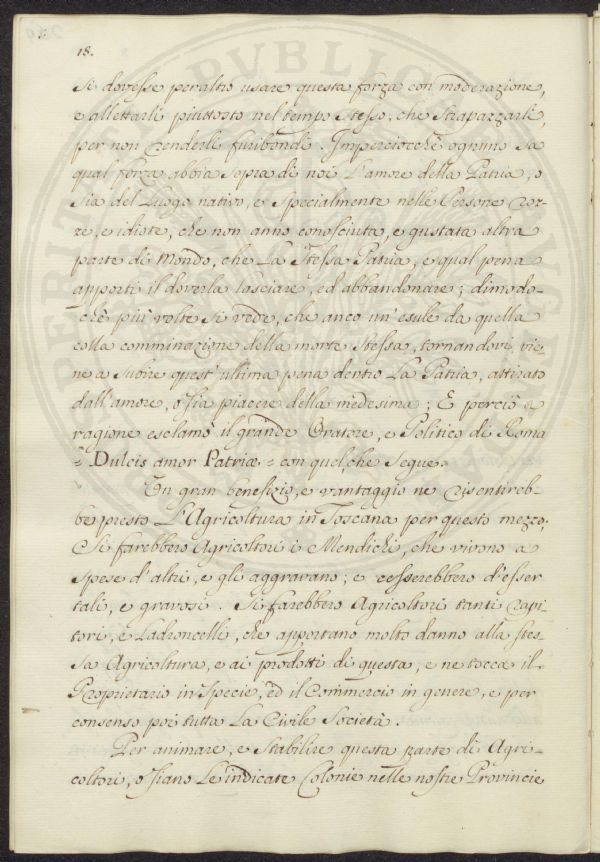 18.
si dovesse peraltro usare questa forza con moderazione,
e allettarli piuttosto nel tempo stesso, che strapazzarli,
per non renderli furibondi. Imperciocchè ognuno sa
qual forza abbia sopra di noi L'amore della Patria, o
sia del Luogo nativo, e specialmente nelle Persone roz-
ze, e idiote, che non anno conosciuta, e gustata altra
parte di Mondo, che La stessa Patria, e qual pena
apporti il doverla lasciare, ed abbandonare; dimodo-
chè più volte si vede, che anco un'esule da quella
colla comminazione della morte stessa, tornandovi, vie-
ne a subire quest'ultima pena dentro La Patria, attirato
dall'amore, o sia piacere della medesima; E perciò a
ragione esclamò il grande Oratore, e Politico di Roma
= Dulcis amor Patriæ = con quel che segue.
Un gran benefizio, e vantaggio ne risentireb-
be presto L'Agricoltura in Toscana per questo mezzo;
Si farebbero Agricoltori i Mendichi, che vivono a
spese d'altri, e gli aggravano; e cesserebbero d'esser
tali, e gravosi. Si farebbero Agricoltori tanti rapi-
tori, e Ladroncelli, che apportano molto danno alla stes-
sa Agricoltura, e ai prodotti di questa, e ne tocca il
Proprietario in specie, ed il Commercio in genere, e per
consenso poi tutta La Civile Società.
Per animare, e stabilire questa parte di Agri-
coltori, o siano Le indicate Colonie nelle nostre Provincie